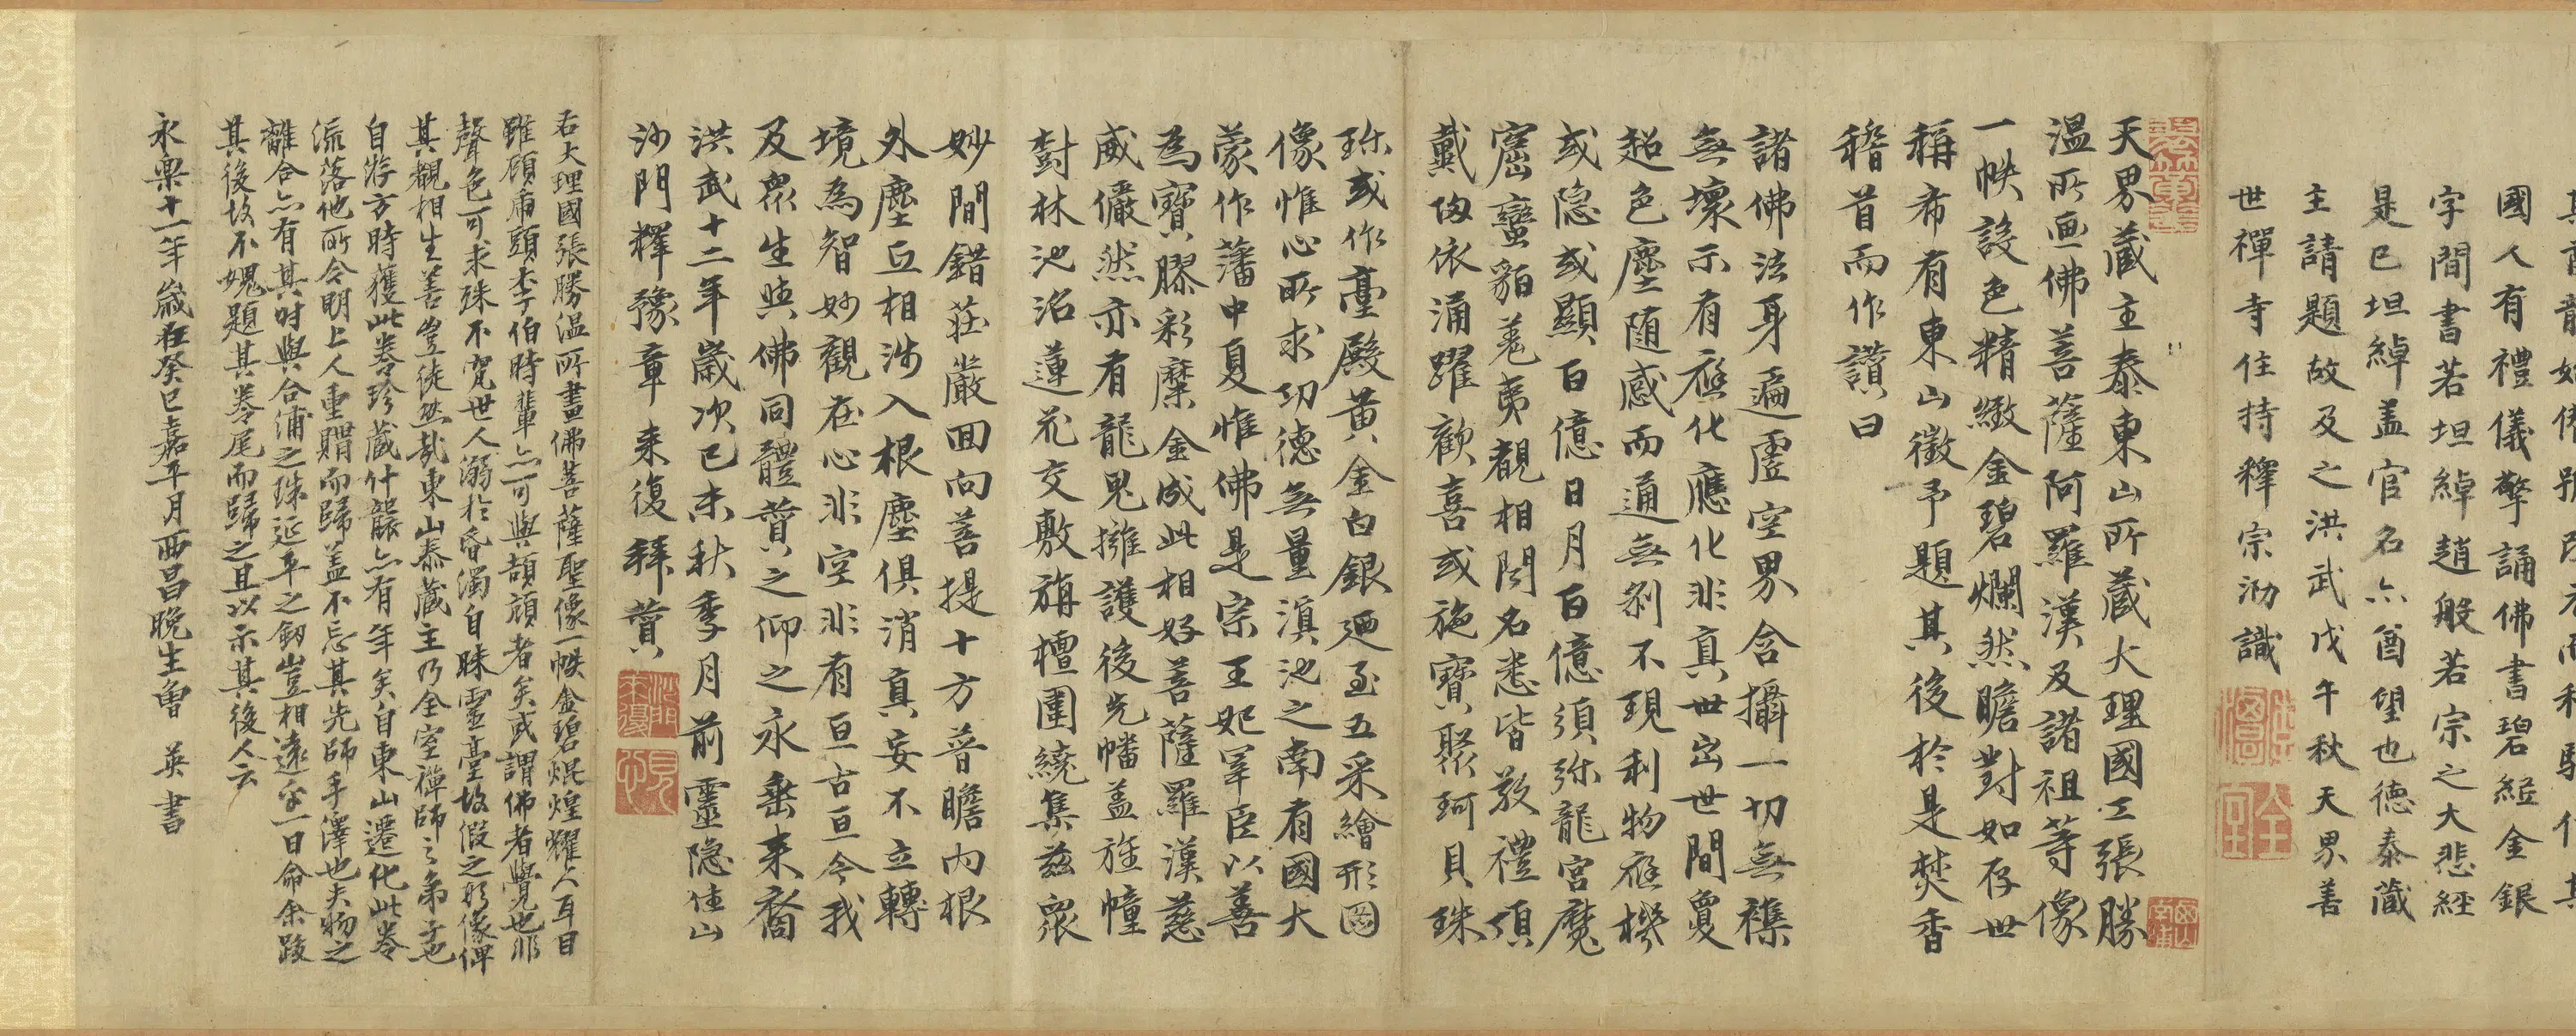 國人有禮儀擎誦佛書碧紙金銀
字間書若坦綽趙般若宗之大悲經
是已坦綽盖官名亦酋望也德泰藏
主請題故及之洪武戊午秋天界善
世禪寺住持釋宗泐識
天界藏主泰東山所藏大理國工張勝
温所画佛菩薩阿羅漢及諸祖等像
一帙設色精緻金碧爛然瞻對如存世
稱希有東山徵予題其後於是焚香
稽首而作讚曰
諸佛法身遍虛空界含攝一切無襍
無壞示有應化應化非真世出世間夐
超色塵随感而通無刹不現利物應機
或隐或顯百億日月百億須弥龍宮魔
窟蠻貊羌夷覩相聞名悉皆敬禮頂
戴歸依涌躍歡喜或施寶聚珂貝珠
珎或作臺殿黄金白銀廼至五采繪形圖
像惟心所求功德無量滇池之南有國大
蒙作藩中夏惟佛是宗王妃宰臣以善
為寶膠彩糜金成此相好菩薩羅漢慈
威儼然亦有龍鬼擁護後先幡盖旌幢
樹林池沼蓮花交敷旃檀圍繞集兹衆
妙間錯莊嚴回向菩提十方普瞻内根
外塵互相涉入根塵俱消真妄不立轉
境為智妙觀在心非空非有亘古亘今我
及衆生與佛同體賛之仰之永垂来裔
洪武十二年歲次己未秋季月前靈隐住山
沙門釋豫章来復拜賛
右大理國張勝温所畫佛菩薩聖像一帙金碧焜煌耀人耳目
雖顧虎頭李伯時輩亦可與頡頏者矣或謂佛者覺也非
聲色可求殊不究世人溺於昏濁自昧靈臺故假之形像俾
其觀相生善豈徒然哉東山泰藏主乃全室禪師之弟子也
自游方時獲此卷珍藏什襲亦有年矣自東山遷化此卷
流落他所今明上人重購而歸盖不忘其先師手澤也夫物之
離合亦有其时與合浦之珠延平之劒豈相遠乎一日命余跋
其後故不媿題其卷尾而歸之且以示其後人云
永樂十一年歲在癸巳嘉平月西昌晩生曾 英書